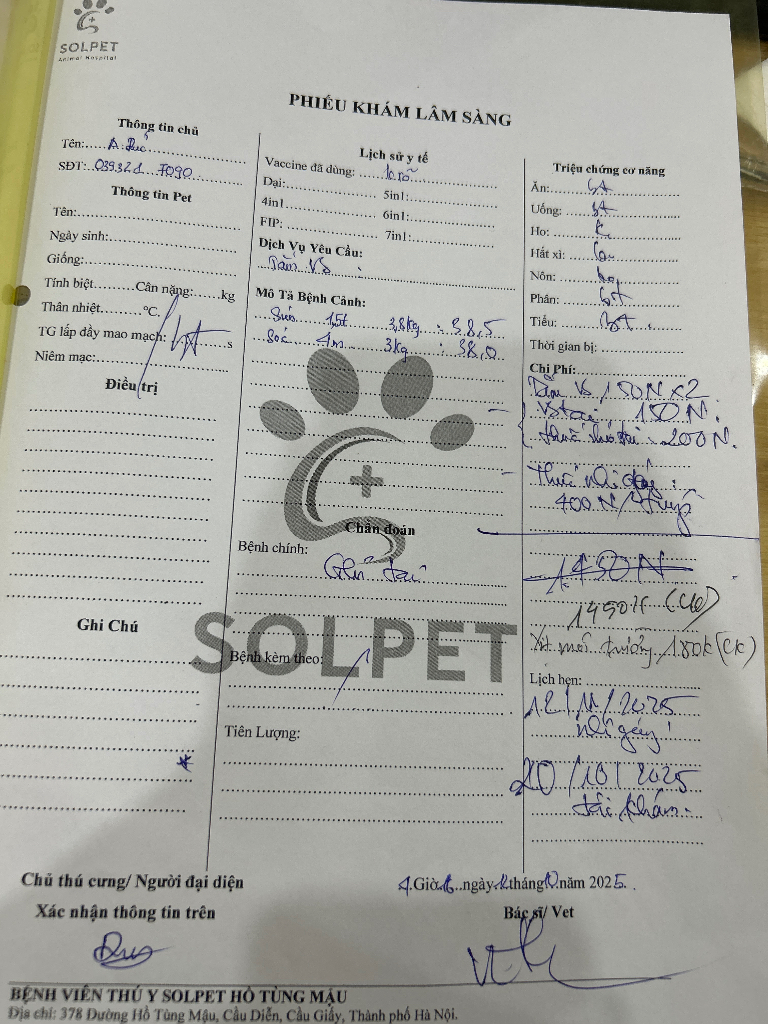 SOLPET
Animal Hospital
PHIẾU KHÁM LÂM SÀNG
Thông tin chủ
Tên: A. Đức
SĐT: 039321 7090
Thông tin Pet
Tên:
Ngày sinh:
Giống:
Tính biệt Cân nặng: kg
Thân nhiệt °C.
TG lấp đầy mao mạch: s
Niêm mạc: BT
Điều trị
Ghi Chú
Lịch sử y tế
Vaccine đã dùng: 0 rõ
Dại: 5in1:
4in1 6in1:
FIP: 7in1:
Dịch Vụ Yêu Cầu:
Tắm VS
Mô Tả Bệnh Cảnh:
1,5t 3,8kg : 38,5
Sóc 4m 3kg : 38,0
Chẩn đoán
Bệnh chính:
Ghẻ tai
SOLPET
Bệnh kèm theo:
Tiên Lượng:
Triệu chứng cơ năng
Ăn: BT
Uống: BT
Ho: K
Hắt xì:
Nôn:
Phân: BT
Tiểu: BT
Thời gian bị:
Chi Phí:
Tắm VS 150N x2
VS tai 150N.
thuốc nhỏ tai : 200N.
Thuốc nhỏ gáy :
400N/tuýp
1.450N
1450K
180k (CK)
Lịch hẹn:
12/11/2025
nhỏ gáy!
20/10/2025
tái khám.
Chủ thú cưng/ Người đại diện
Xác nhận thông tin trên
Giờ ngày 12 tháng 10 năm 2025.
Bác sĩ/ Vet
BỆNH VIỆN THÚ Y SOLPET HỒ TÙNG MẬU
Địa chỉ: 378 Đường Hồ Tùng Mậu, Cầu Diễn, Cầu Giấy, Thành phố Hà Nội.